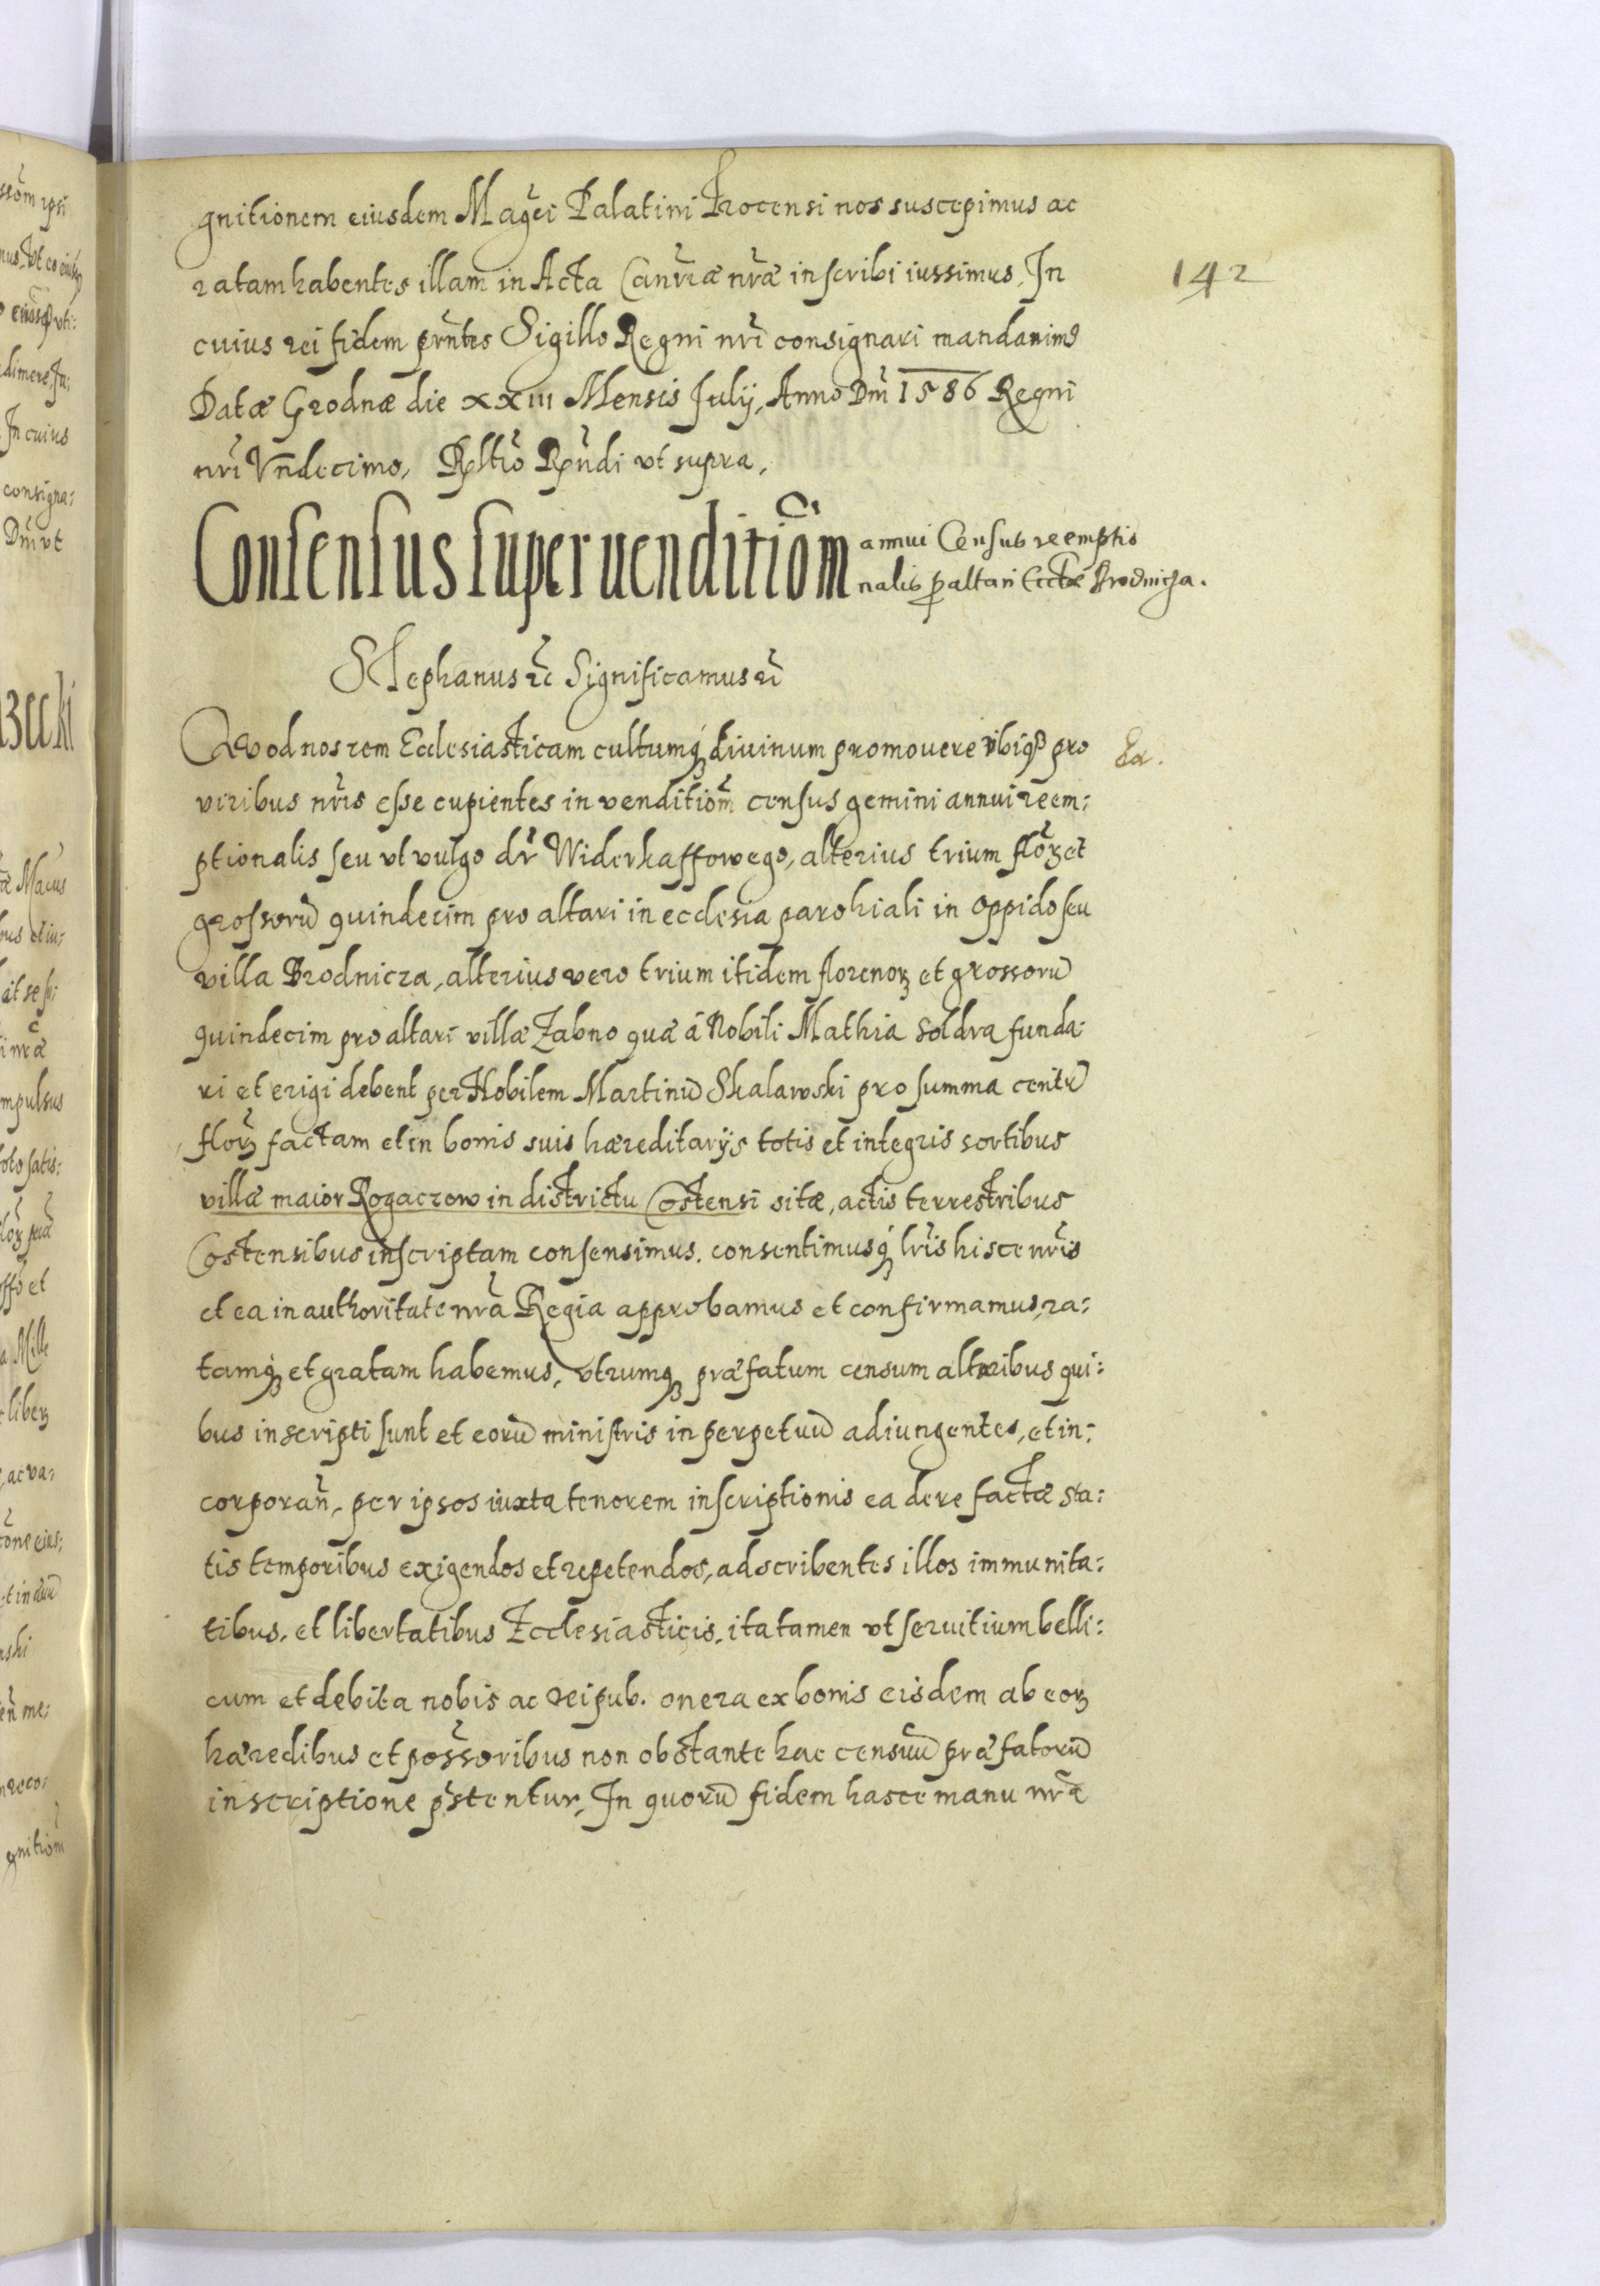 142
gnitionem eiusdem Magci Palatini Trocensi nos suscepimus ac
ratam habentes illam in Acta Canrriæ nræ inscribi iussimus. In
cuius rei fidem prntes Sigillo Regni nri consignari mandavimus
Datæ Grodnæ die XXIII Mensis Julij, Anno Dni 1586 Regni
nri Vndecimo, Rltio Rndi vt supra,
Consensus super uenditiom annui Census reemptio
nalis p altari Ecclæ Brodnicza.
Stephanus rc Significamus rc
Quod nos rem Ecclesiasticam cultumq; divinum promovere vbiq; pro
viribus nris esse cupientes in venditiom census gemini annui reem:
ptionalis seu vt vulgo dr Widerkaffowego, alterius trium florz et
grossorū quindecim pro altari in ecclesia parohiali in oppido seu
villa Brodnicza, alterius vero trium itidem florenorz et grossorū
quindecim pro altari villæ Zabno quæ á Nobili Mathia Soldra funda:
ri et erigi debent per Nobilem Martinū Skalawski pro summa centū
florz factam et in bonis suis hæreditarijs totis et integris sortibus
villæ maior Rogaczow in districtu Costensi sitæ, actis terrestribus
Costensibus inscriptam consensimus. consentimusq; lris hisce nris
et ea in authoritate nra Regia approbamus et confirmamus, ra:
tamq; et gratam habemus, vtrumq; præfatum censum altaribus qui:
bus inscripti sunt et eorū ministris in perpetuū adiungentes, et in:
corporan, per ipsos iuxta tenorem inscriptionis ea de re factæ sta:
tis temporibus exigendos et repetendos, adscribentes illos immunita:
tibus, et libertatibus Ecclesiasticis, ita tamen vt servitium belli:
cum et debita nobis ac reipub. onera ex bonis eisdem ab eorz
hæredibus et possoribus non obstante hac censuū præfatorū
inscriptione pstentur, In quorū fidem hasce manu nra